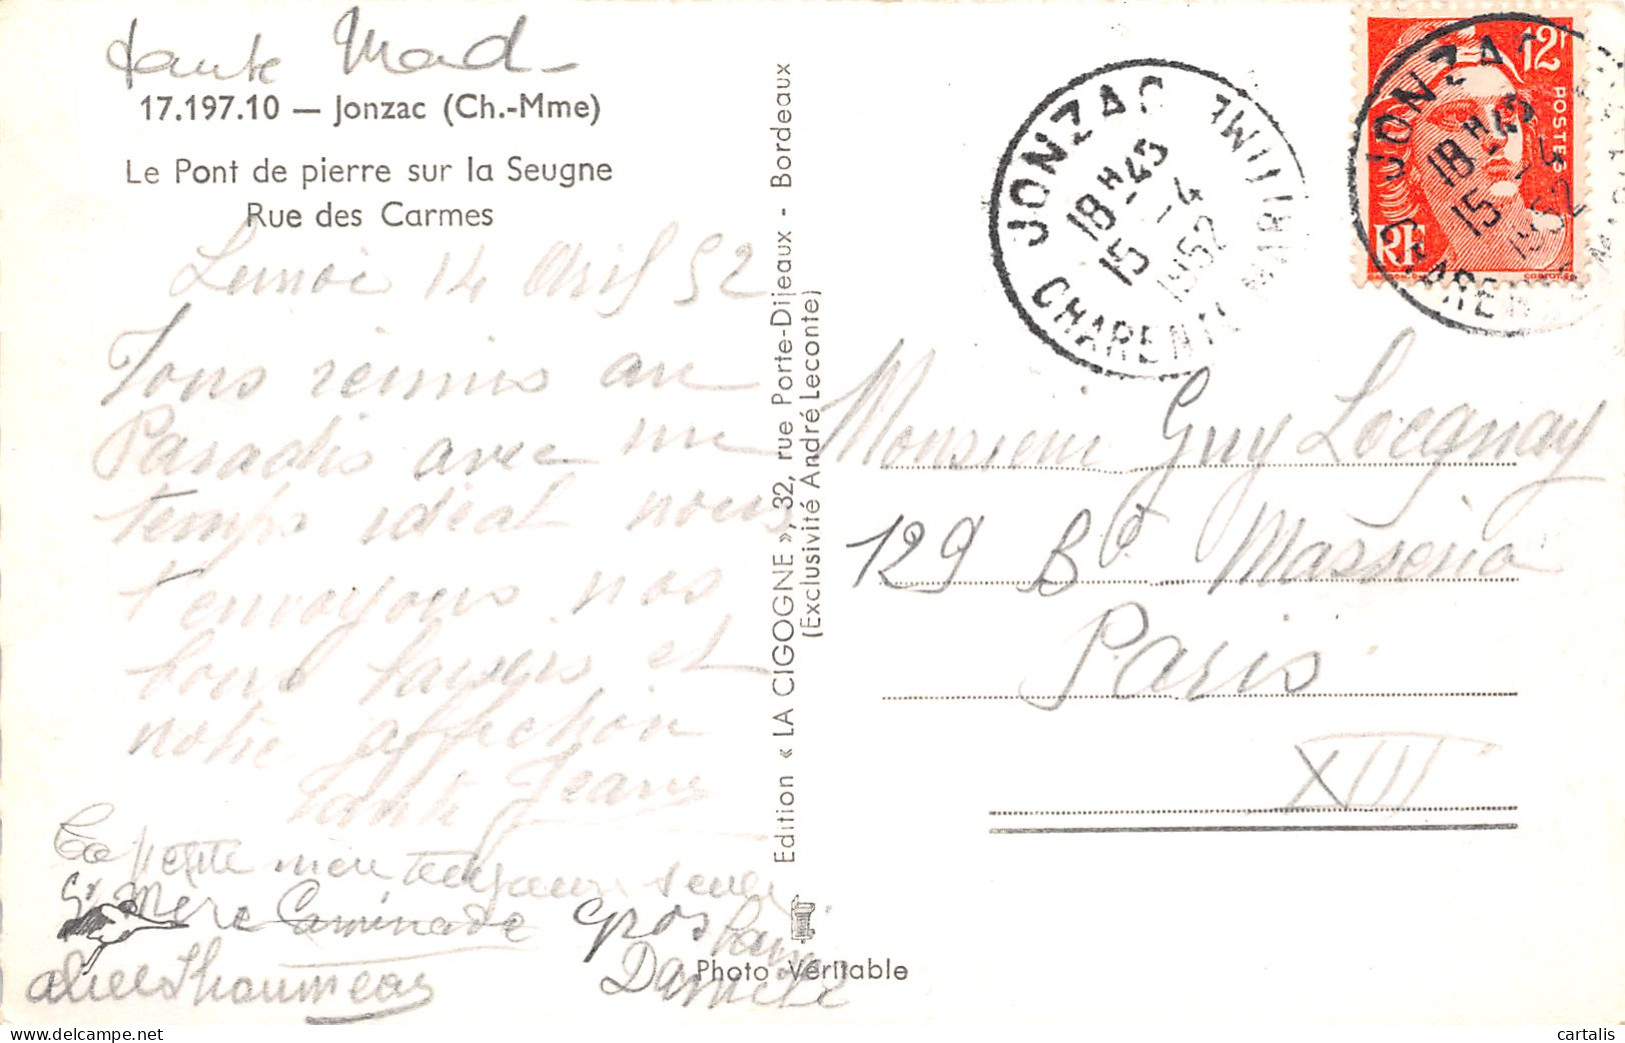 tante Mad
17.197.10 — Jonzac (Ch.-Mme)
Le Pont de pierre sur la Seugne
Rue des Carmes
14 Avril 52
Tous réunis au
Paradis avec un
temps idéal nous
t'envoyons nos
bons baisers et
notre affection
tante Jeane
petite
Gd Mère Caminade
gros
Danièle
Edition « LA CIGOGNE », 32, rue Porte-Dijeaux - Bordeaux
(Exclusivité André Leconte)
Photo Véritable
JONZAC
18H45
15-4
1952
CHARENTE MARITIME
12F
POSTES
RF
JONZAC
18H45
15-4
1952
CHARENTE MARITIME
Monsieur Guy Locqnay
129 Bd Masséna
Paris
XIII
cartalis